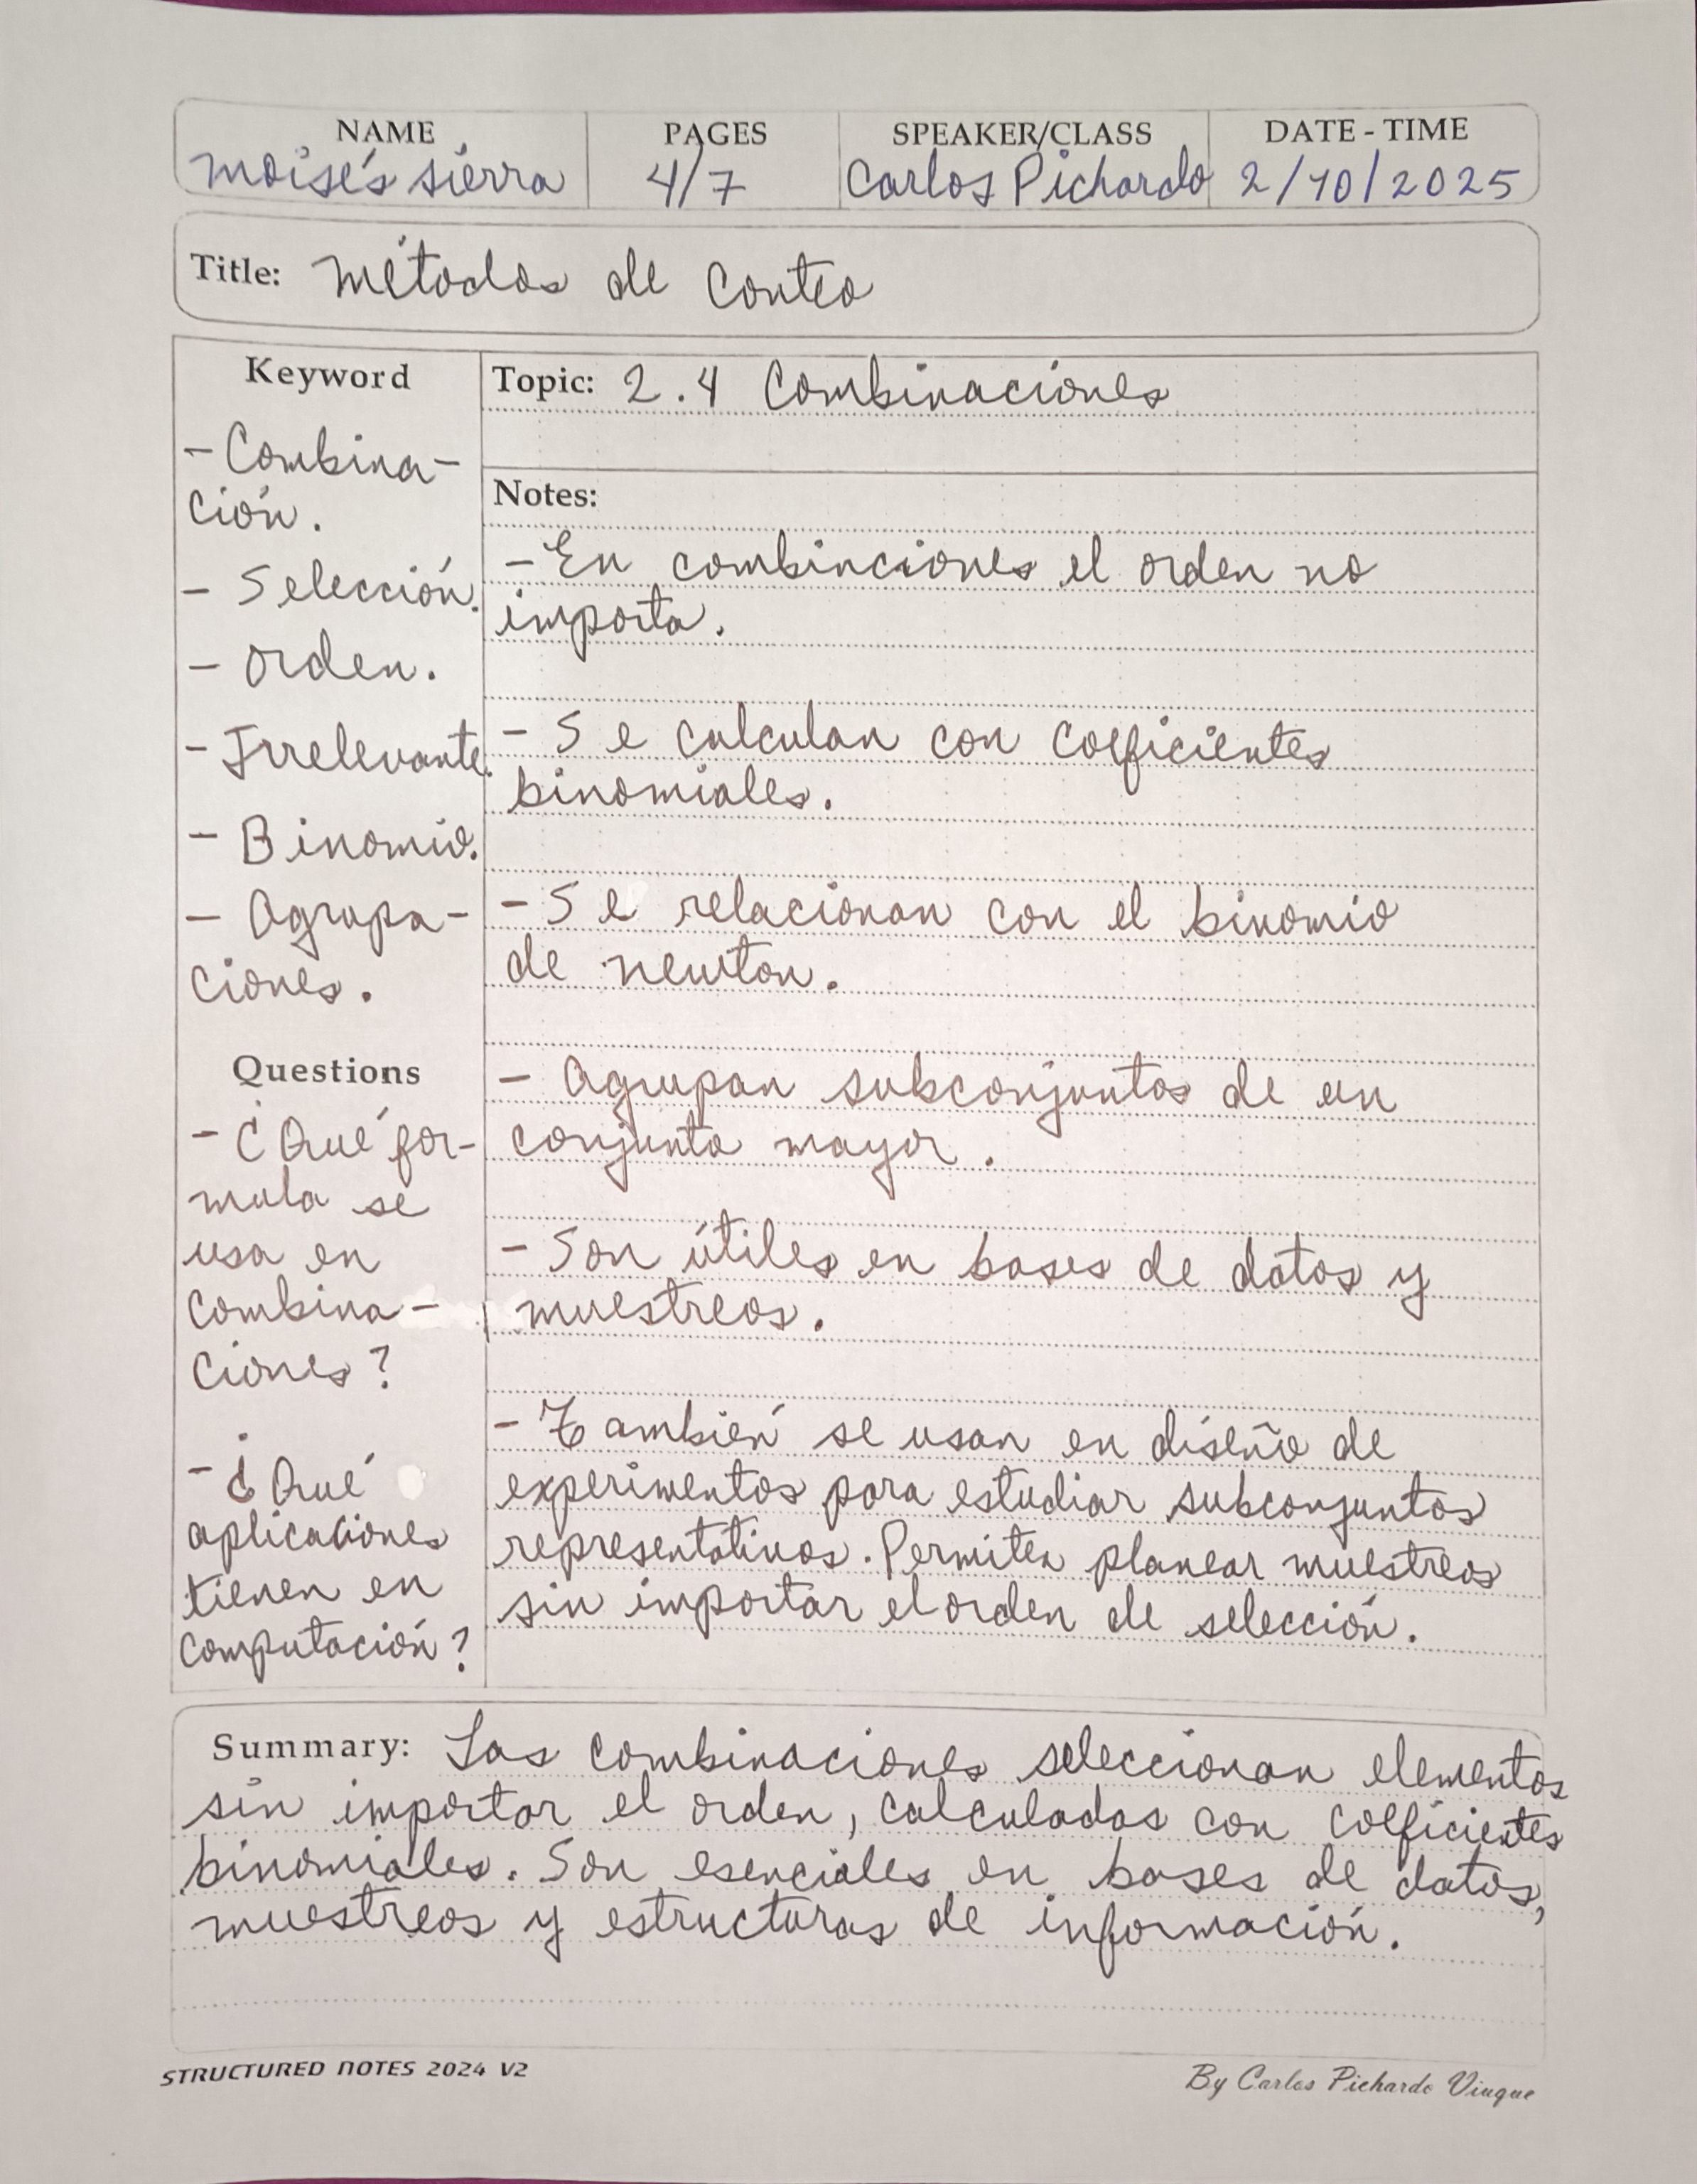 NAME PAGES SPEAKER/CLASS DATE - TIME
Moisés Sierra 4/7 Carlos Pichardo 2/10/2025
Title: Métodos de Conteo
Keyword
- Combina-
ción.
- Selección.
- Orden.
- Irrelevante.
- Binomio.
- Agrupa-
ciones.
Questions
- ¿Qué fór-
mula se
usa en
combina-
ciones?
- ¿Qué
aplicaciones
tienen en
computación?
Topic: 2.4 Combinaciones
Notes:
- En combinciones el orden no
importa.
- Se calculan con coeficientes
binomiales.
- Se relacionan con el binomio
de newton.
- Agrupan subconjuntos de un
conjunto mayor.
- Son útiles en bases de datos y
muestreos.
- También se usan en diseño de
experimentos para estudiar subconjuntos
representativos. Permiten planear muestreos
sin importar el orden de selección.
Summary: Las combinaciones seleccionan elementos
sin importar el orden, calculadas con coeficientes
binomiales. Son esenciales en bases de datos,
muestreos y estructuras de información.
STRUCTURED NOTES 2024 V2
By Carlos Pichardo Viuque